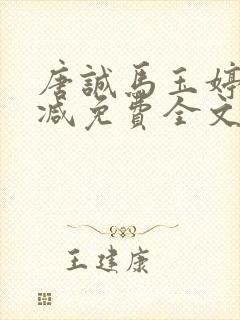 唐誠馬玉婷
減免費全文
王建康